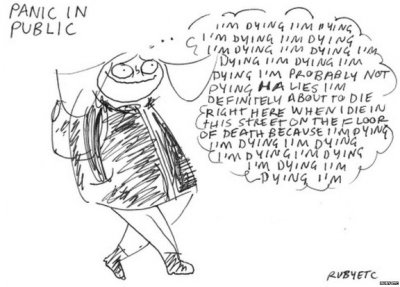 PANIC IN
PUBLIC
I'M DYING I'M DYING
I'M DYING I'M DYING
I'M DYING I'M DYING I'M
DYING I'M DYING I'M
DYING I'M PROBABLY NOT
DYING HA LIES I'M
DEFINITELY ABOUT TO DIE
RIGHT HERE WHEN I DIE IN
THIS STREET ON THE FLOOR
OF DEATH BECAUSE I'M DYING
I'M DYING I'M DYING
I'M DYING I'M DYING
I'M DYING I'M
DYING I'M
RUBYETC